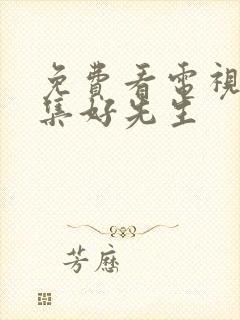 免費看電視
集好先生
芳歷